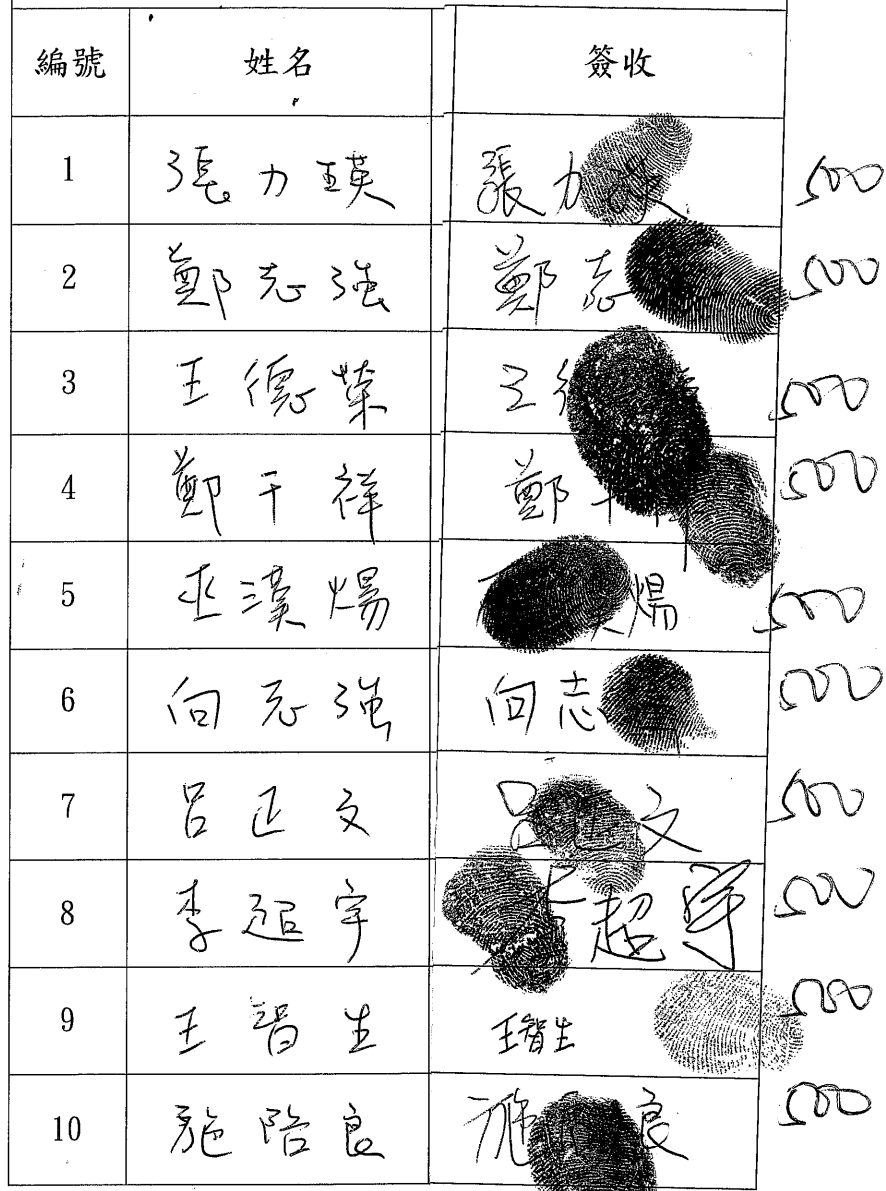 編號 姓名 簽收
1 張力瑛 張力 500
2 鄭志強 鄭志 500
3 王德榮 王 500
4 鄭干祥 鄭 500
5 巫漢煬 煬 500
6 向志強 向志 500
7 呂正文 呂 文 500
8 李超宇 李超宇 500
9 王智生 王智生 500
10 施陪良 施 良 500